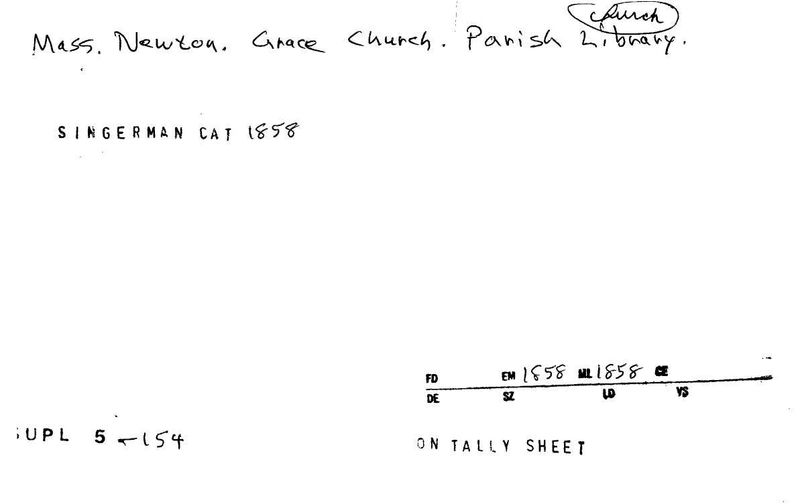 church
Mass. Newton. Grace Church. Parish Library.
SINGERMAN CAT 1858
FD EM 1858 ML 1858 CE
DE SZ LD VS
SUPL 5 -154
ON TALLY SHEET